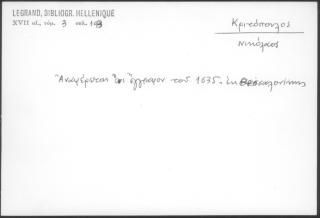 LEGRAND, BIBLIOGR. HELLENIQUE
XVII αἰ., τόμ. 3 σελ. 193
Κριτόπουλος
Νικόλαος
Ἀναφέρεται εἰς ἔγγραφον τοῦ 1635. ἐκ Θεσσαλονίκης